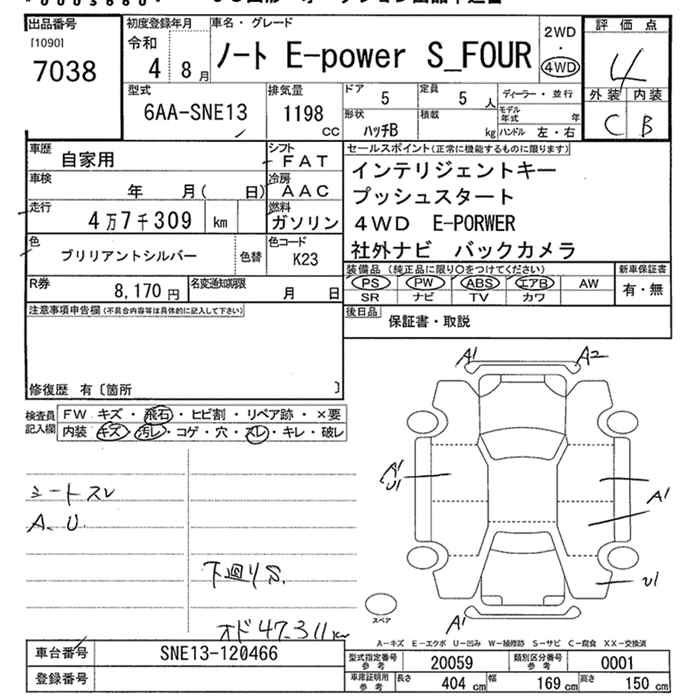 出品番号
[1090]
7038
初度登録年月
令和
4年 8月
車名・グレード
ノート E-power S_FOUR
2WD
・
4WD
評価点
4
外装 内装
C B
型式
6AA-SNE13
排気量
1198
CC
ドア 5
定員 5人
ディーラー・並行
形状
ハッチB
積載
kg
モデル年式 年
ハンドル 左・右
車歴
自家用
シフト
FAT
車検
年 月( 日)
冷房
AAC
走行
4万7千309 km
燃料
ガソリン
色
ブリリアントシルバー
色替
色コード
K23
R券
8,170円
名変通知期限
月 日
セールスポイント(正常に機能するものに限ります)
インテリジェントキー
プッシュスタート
4WD E-PORWER
社外ナビ バックカメラ
装備品 (純正品に限り○をつけてください)
PS PW ABS エアB AW
SR ナビ TV カワ
新車保証書
有・無
後日品
保証書・取説
注意事項申告欄(不具合内容等は具体的に記入して下さい)
修復歴 有〔箇所 〕
検査員
記入欄
FW キズ・飛石・ヒビ割・リペア跡・×要
内装 キズ・汚レ・コゲ・穴・スレ・キレ・破レ
シートスレ
A、U
下廻りS
オド47,311km
A1
A2
A1
U1
A1
U1
A1
スペア
A-キズ E-エクボ U-凹み W-補修跡 S-サビ C-腐食 XX-交換済
車台番号
SNE13-120466
登録番号
型式指定番号
参考
20059
類別区分番号
参考
0001
車庫証明用
参考
長さ 404cm
幅 169cm
高さ 150cm